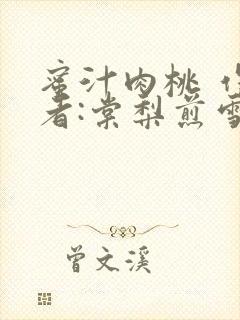 蜜汁肉桃 作
者:棠梨煎雪
曾文溪